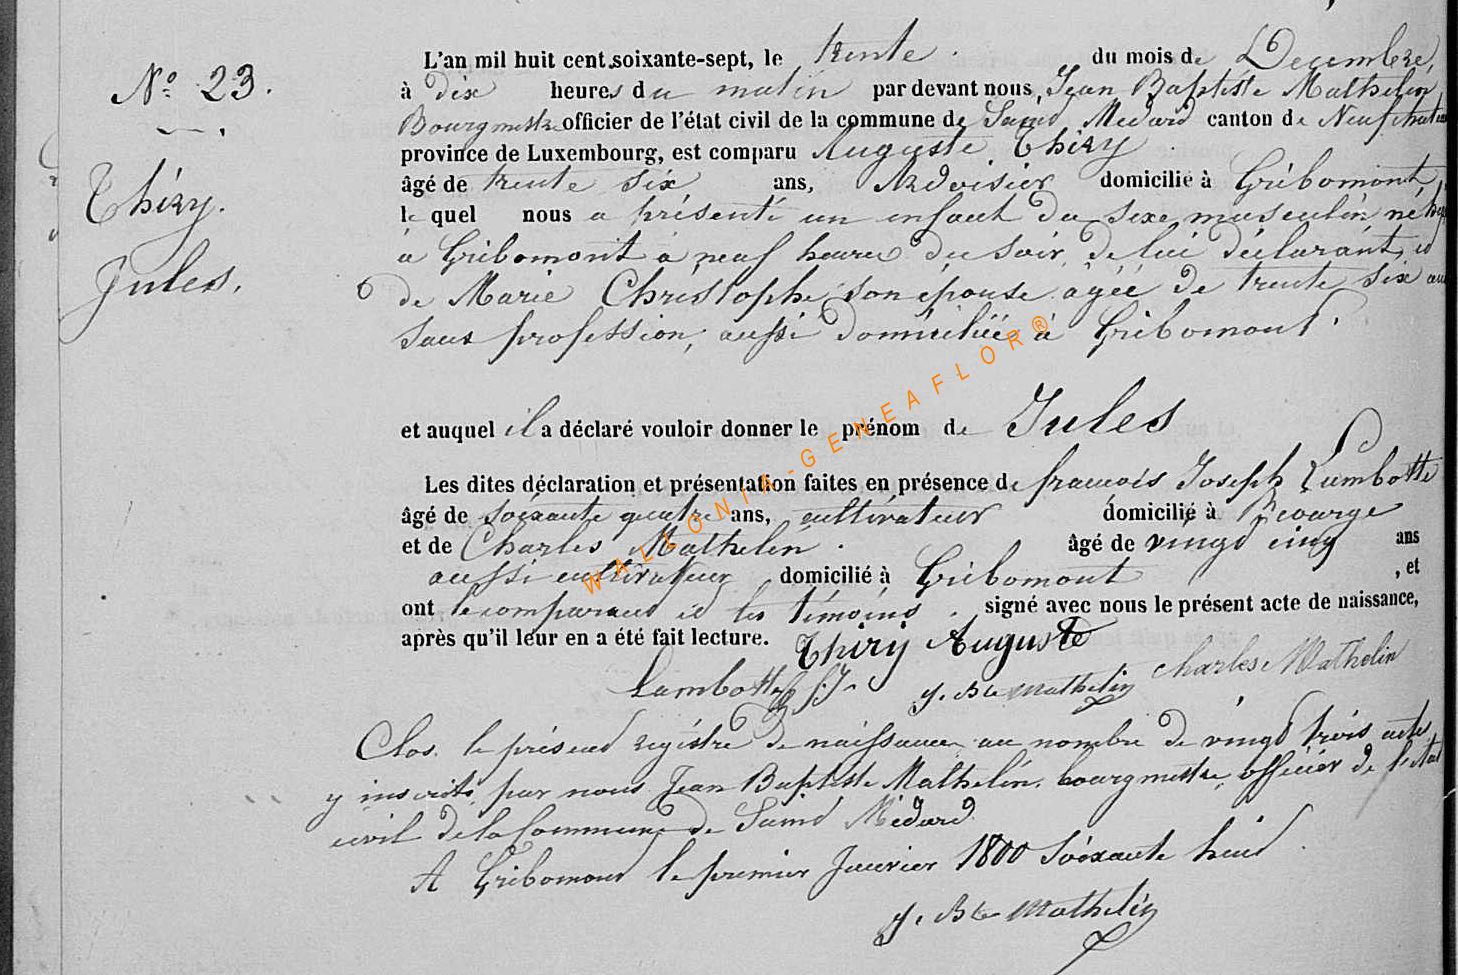 N° 23.
Thiry.
Jules.
L'an mil huit cent soixante-sept, le trente du mois de Decembre,
à dix heures du matin par devant nous, Jean Baptiste Mathelin
Bourgmestre officier de l'état civil de la commune de Saint Medard canton de Neufchateau
province de Luxembourg, est comparu Auguste Thiry
âgé de trente six ans, Ardoisier domicilié à Gribomont,
le quel nous a présenté un enfant du sexe masculin né
à Gribomont à neuf heures du soir, de lui déclarant, et
de Marie Christophe son épouse agée de trente six ans
sans profession, aussi domiciliée à Gribomont.
et auquel il a déclaré vouloir donner le prénom de Jules
Les dites déclaration et présentation faites en présence de françois Joseph Lambotte
âgé de soixante quatre ans, cultivateur domicilié à
et de Charles Mathelin. âgé de vingt cinq ans
aussi cultivateur domicilié à Gribomont, et
ont le comparant et les témoins, signé avec nous le présent acte de naissance,
après qu'il leur en a été fait lecture. Thiry Auguste
Lambotte f.J. J. Bte Mathelin Charles Mathelin
Clos le présent régistre de naissances au nombre de vingt trois actes
y inscrits par nous Jean Baptiste Mathelin, bourgmestre, officier de l'état
civil de la Commune de Saint Médard.
A Gribomont le premier Janvier 1800 soixante huit.
J. Bte Mathelin
WALLONIA-GENEAFLOR®